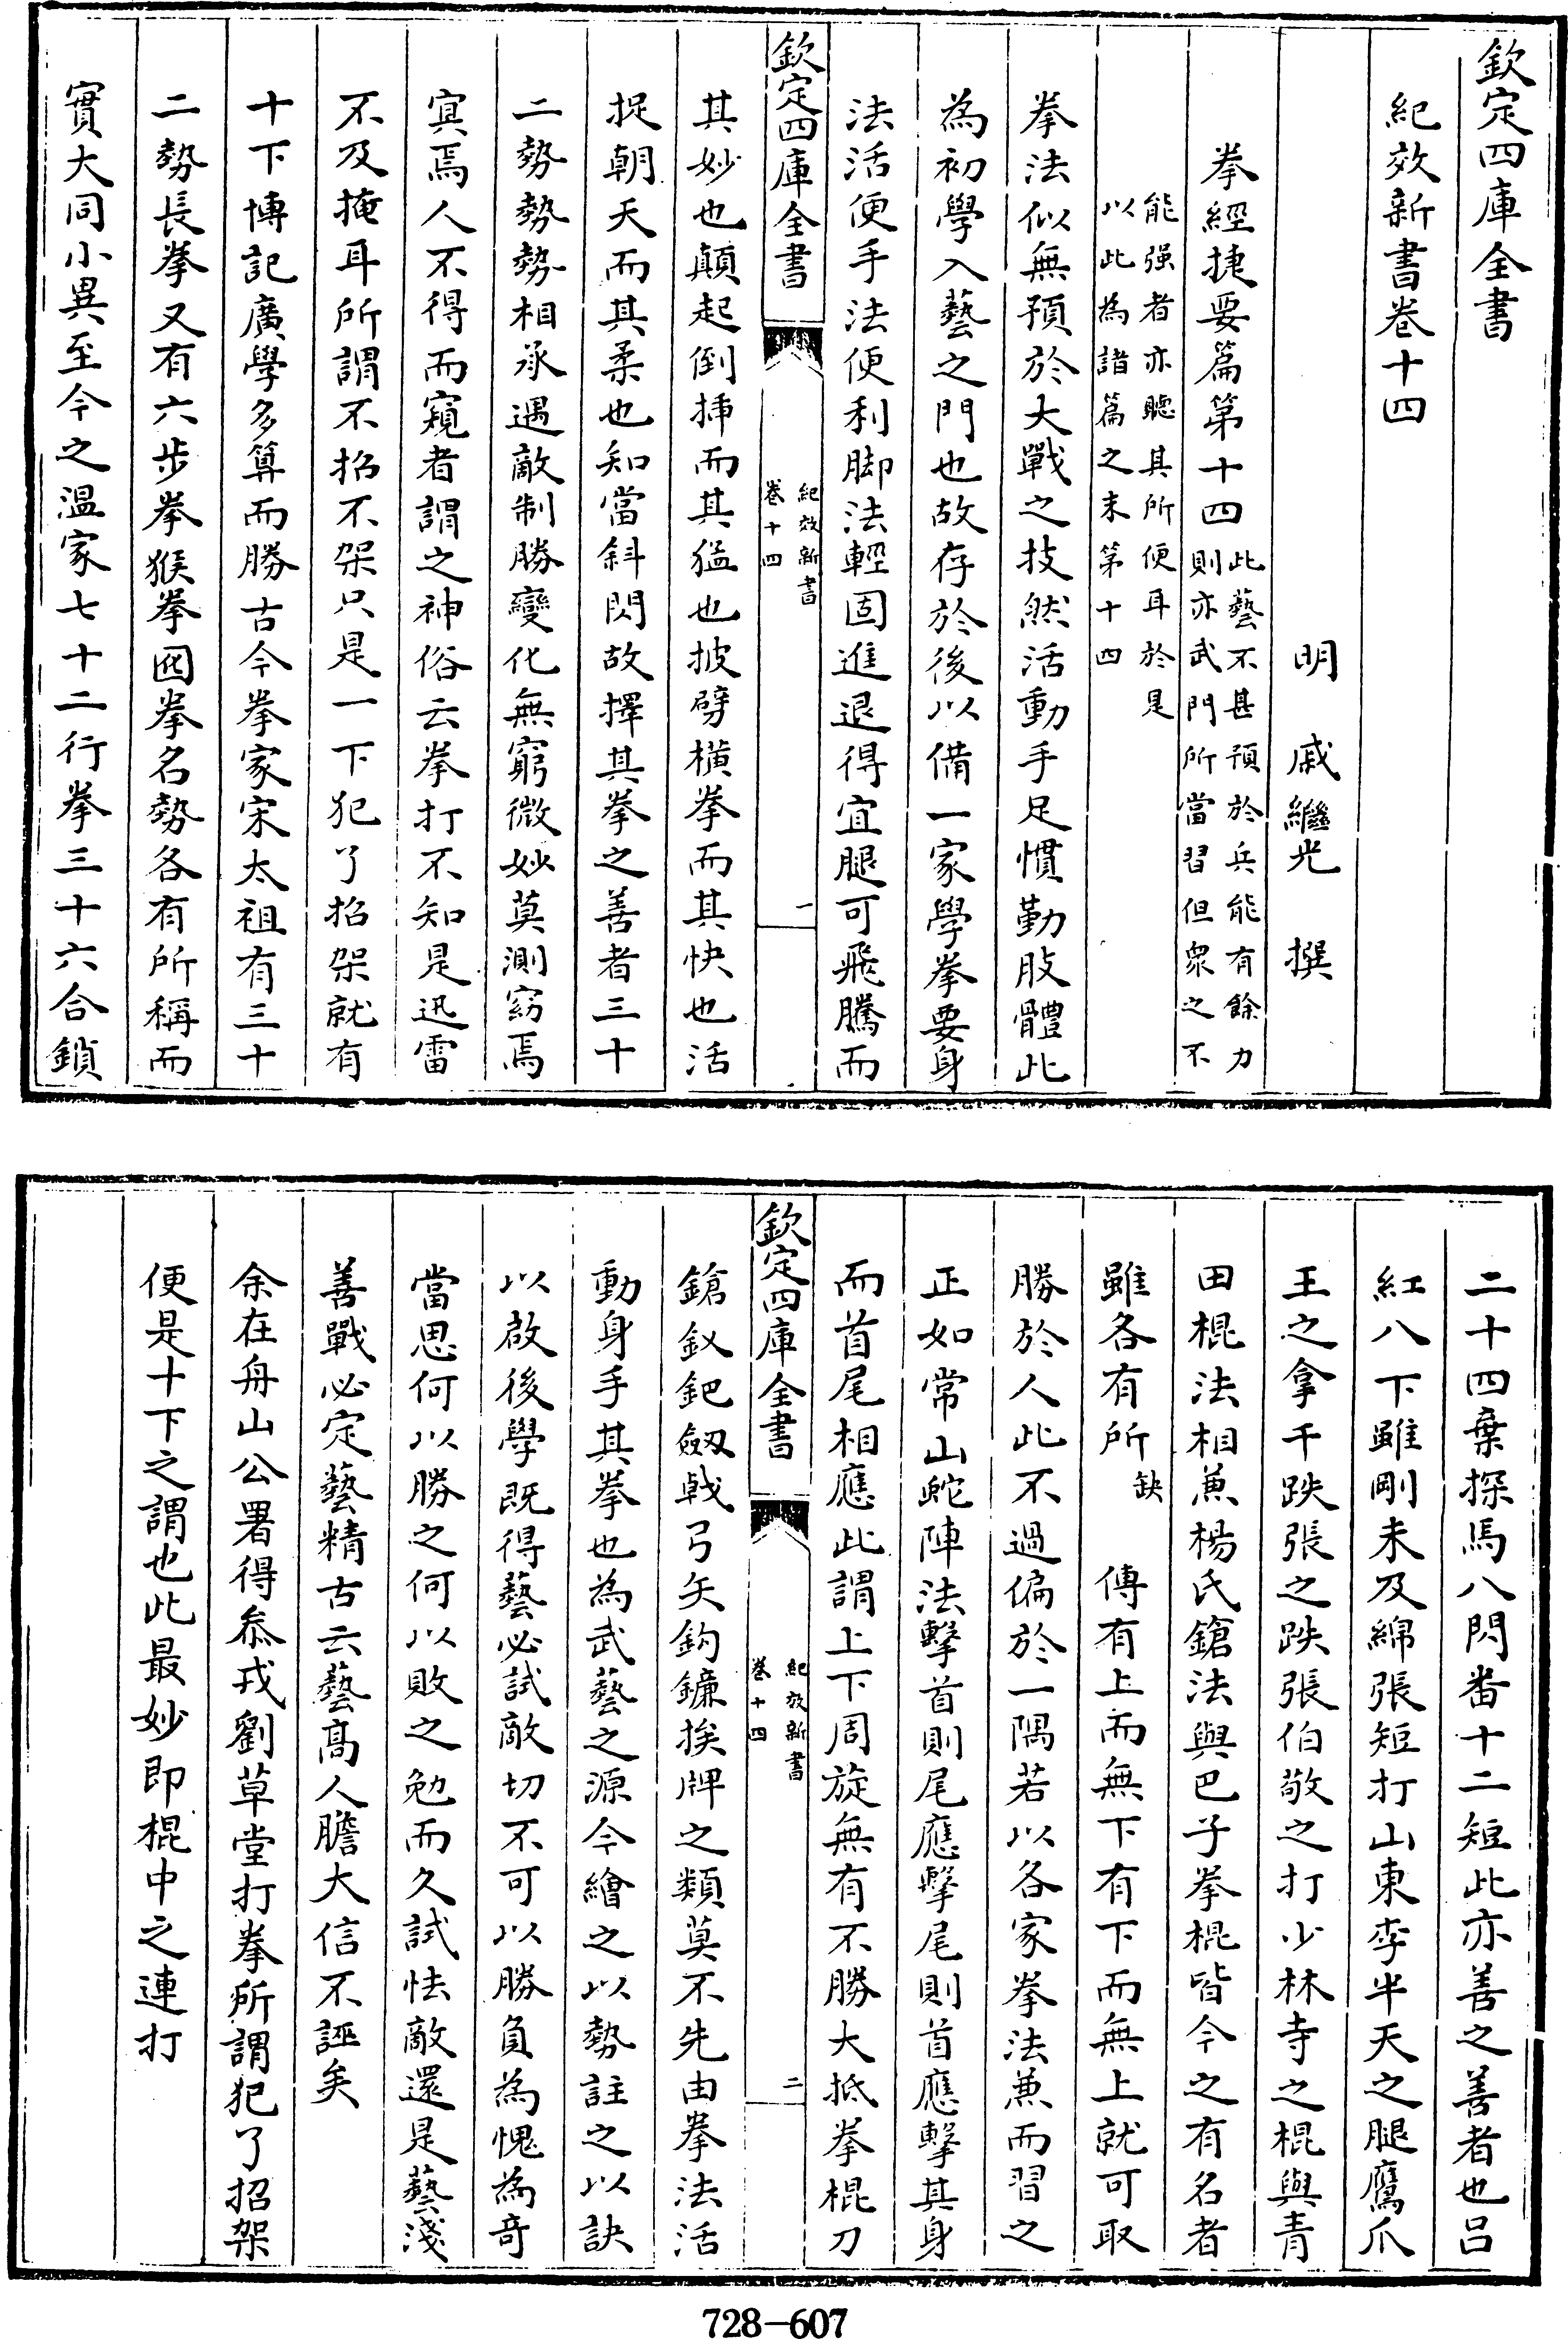 欽定四庫全書
紀效新書卷十四
明 戚繼光 撰
拳經捷要篇第十四此藝不甚預於兵能有餘力則亦武門所當習但衆之不
能强者亦聽其所便耳於是以此為諸篇之末第十四
拳法似無預於大戰之技然活動手足慣勤肢體此
為初學入藝之門也故存於後以備一家學拳要身
法活便手法便利脚法輕固進退得宜腿可飛騰而
欽定四庫全書 紀效新書 卷十四 一
其妙也顛起倒揷而其猛也披劈橫拳而其快也活
捉朝天而其柔也知當斜閃故擇其拳之善者三十
二勢勢勢相承遇敵制勝變化無窮微妙莫測窈焉
㝠焉人不得而窺者謂之神俗云拳打不知是迅雷
不及掩耳所謂不招不架只是一下犯了招架就有
十下博記廣學多算而勝古今拳家宋太祖有三十
二勢長拳又有六步拳猴拳囮拳名勢各有所稱而
實大同小異至今之温家七十二行拳三十六合鎖
二十四棄探馬八閃畨十二短此亦善之善者也吕
紅八下雖剛未及綿張短打山東李半天之腿鷹爪
王之拿千跌張之跌張伯敬之打少林寺之棍與青
田棍法相兼楊氏鎗法與巴子拳棍皆今之有名者
雖各有所缺 傳有上而無下有下而無上就可取
勝於人此不過偏於一隅若以各家拳法兼而習之
正如常山蛇陣法擊首則尾應擊尾則首應擊其身
而首尾相應此謂上下周旋無有不勝大抵拳棍刀
欽定四庫全書 紀效新書 卷十四 二
鎗釵鈀劔戟弓矢鈎鐮挨牌之類莫不先由拳法活
動身手其拳也為武藝之源今繪之以勢註之以訣
以啟後學既得藝必試敵切不可以勝負為愧為奇
當思何以勝之何以敗之勉而久試怯敵還是藝淺
善戰必定藝精古云藝髙人膽大信不誣矣
余在舟山公署得叅戎劉草堂打拳所謂犯了招架
便是十下之謂也此最妙即棍中之連打
728-607